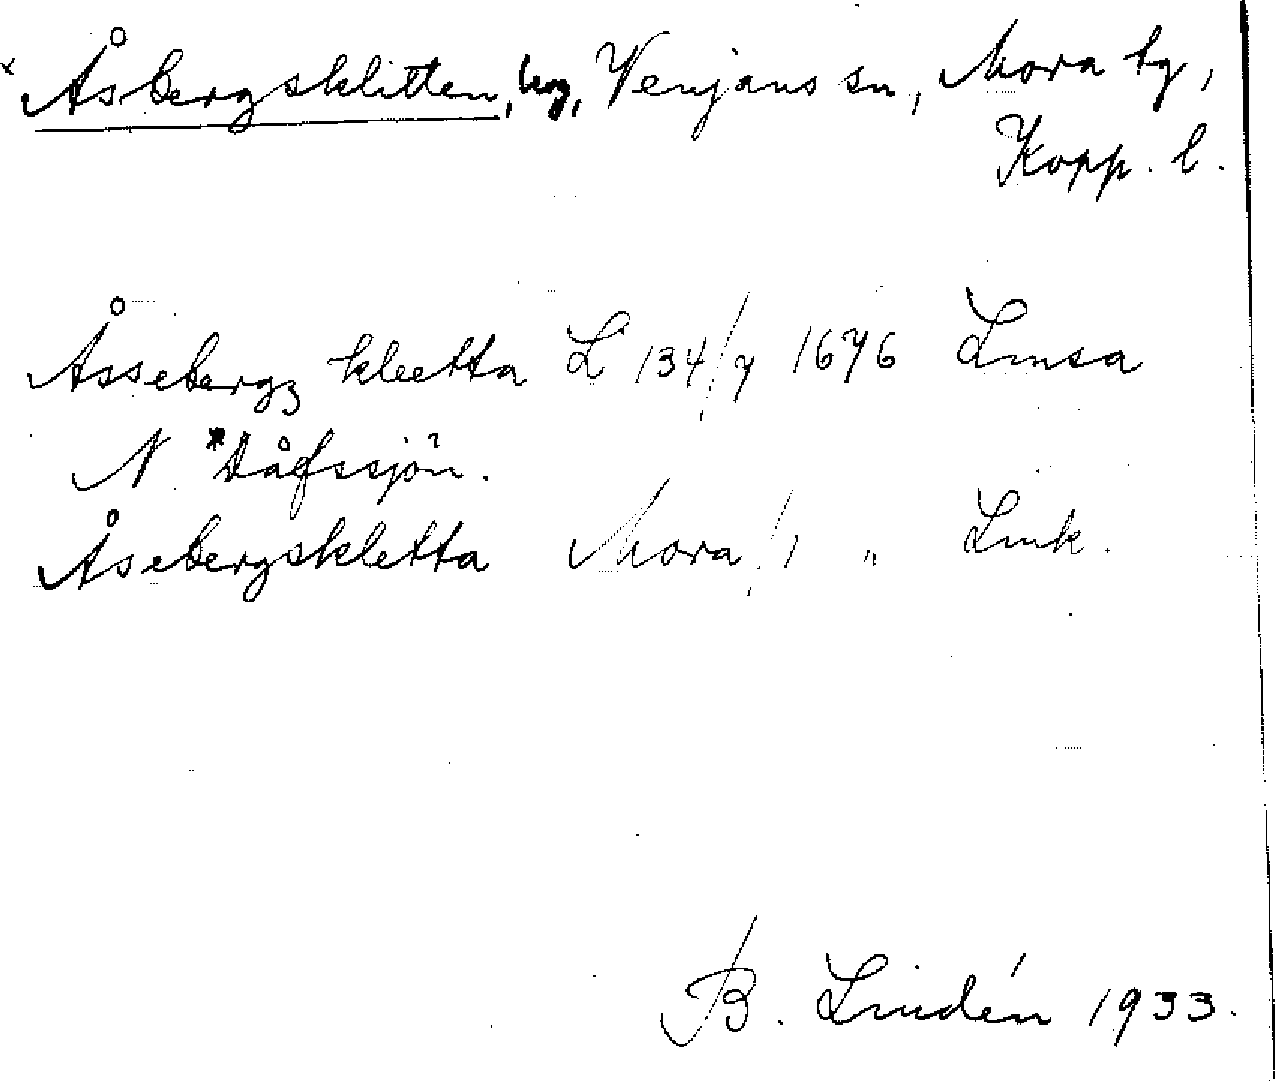 x Åsbergsklitten, bg, Venjans sn, Mora tg,
Kopp. l.
Åssebergz kleetta L 134/7 1676 Lmsa
N *Dåfssjön.
Åsebergskletta Mora 1/1 " Lmk.
B. Lindén 1933.